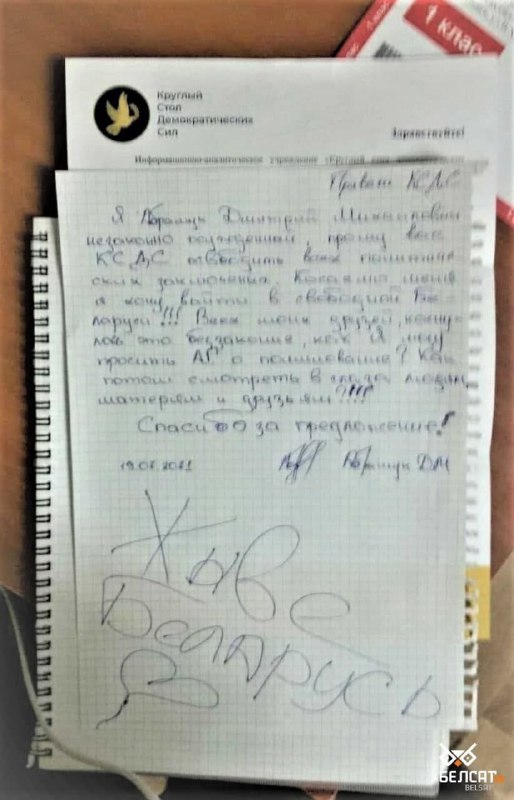 1 клас
Круглый
Стол
Демократических
Сил
Здравствуйте!
Информационно-аналитическое учреждение «Круглый
Привет КСДС
Я Абрамук Дмитрий Михайлович
незаконно осужденный, прошу вас
КСДС освободить всех политиче-
ских заключения. Касаемо меня
я хочу выйти в свободной Бе-
ларуси!!! Всех моих друзей,
это беззаконие, как Я могу
просить АГ о помиловании? Как
потом смотреть в глаза людям,
матерям и друзьям?!!!
Спасибо за предложение!
19.07.2021 Абрамук ДМ
Жыве
Беларусь
БЕЛСАТ
BELSAT